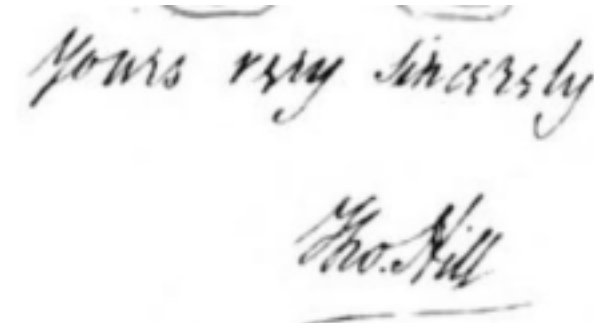 Yours very sincerely
Tho. Hill